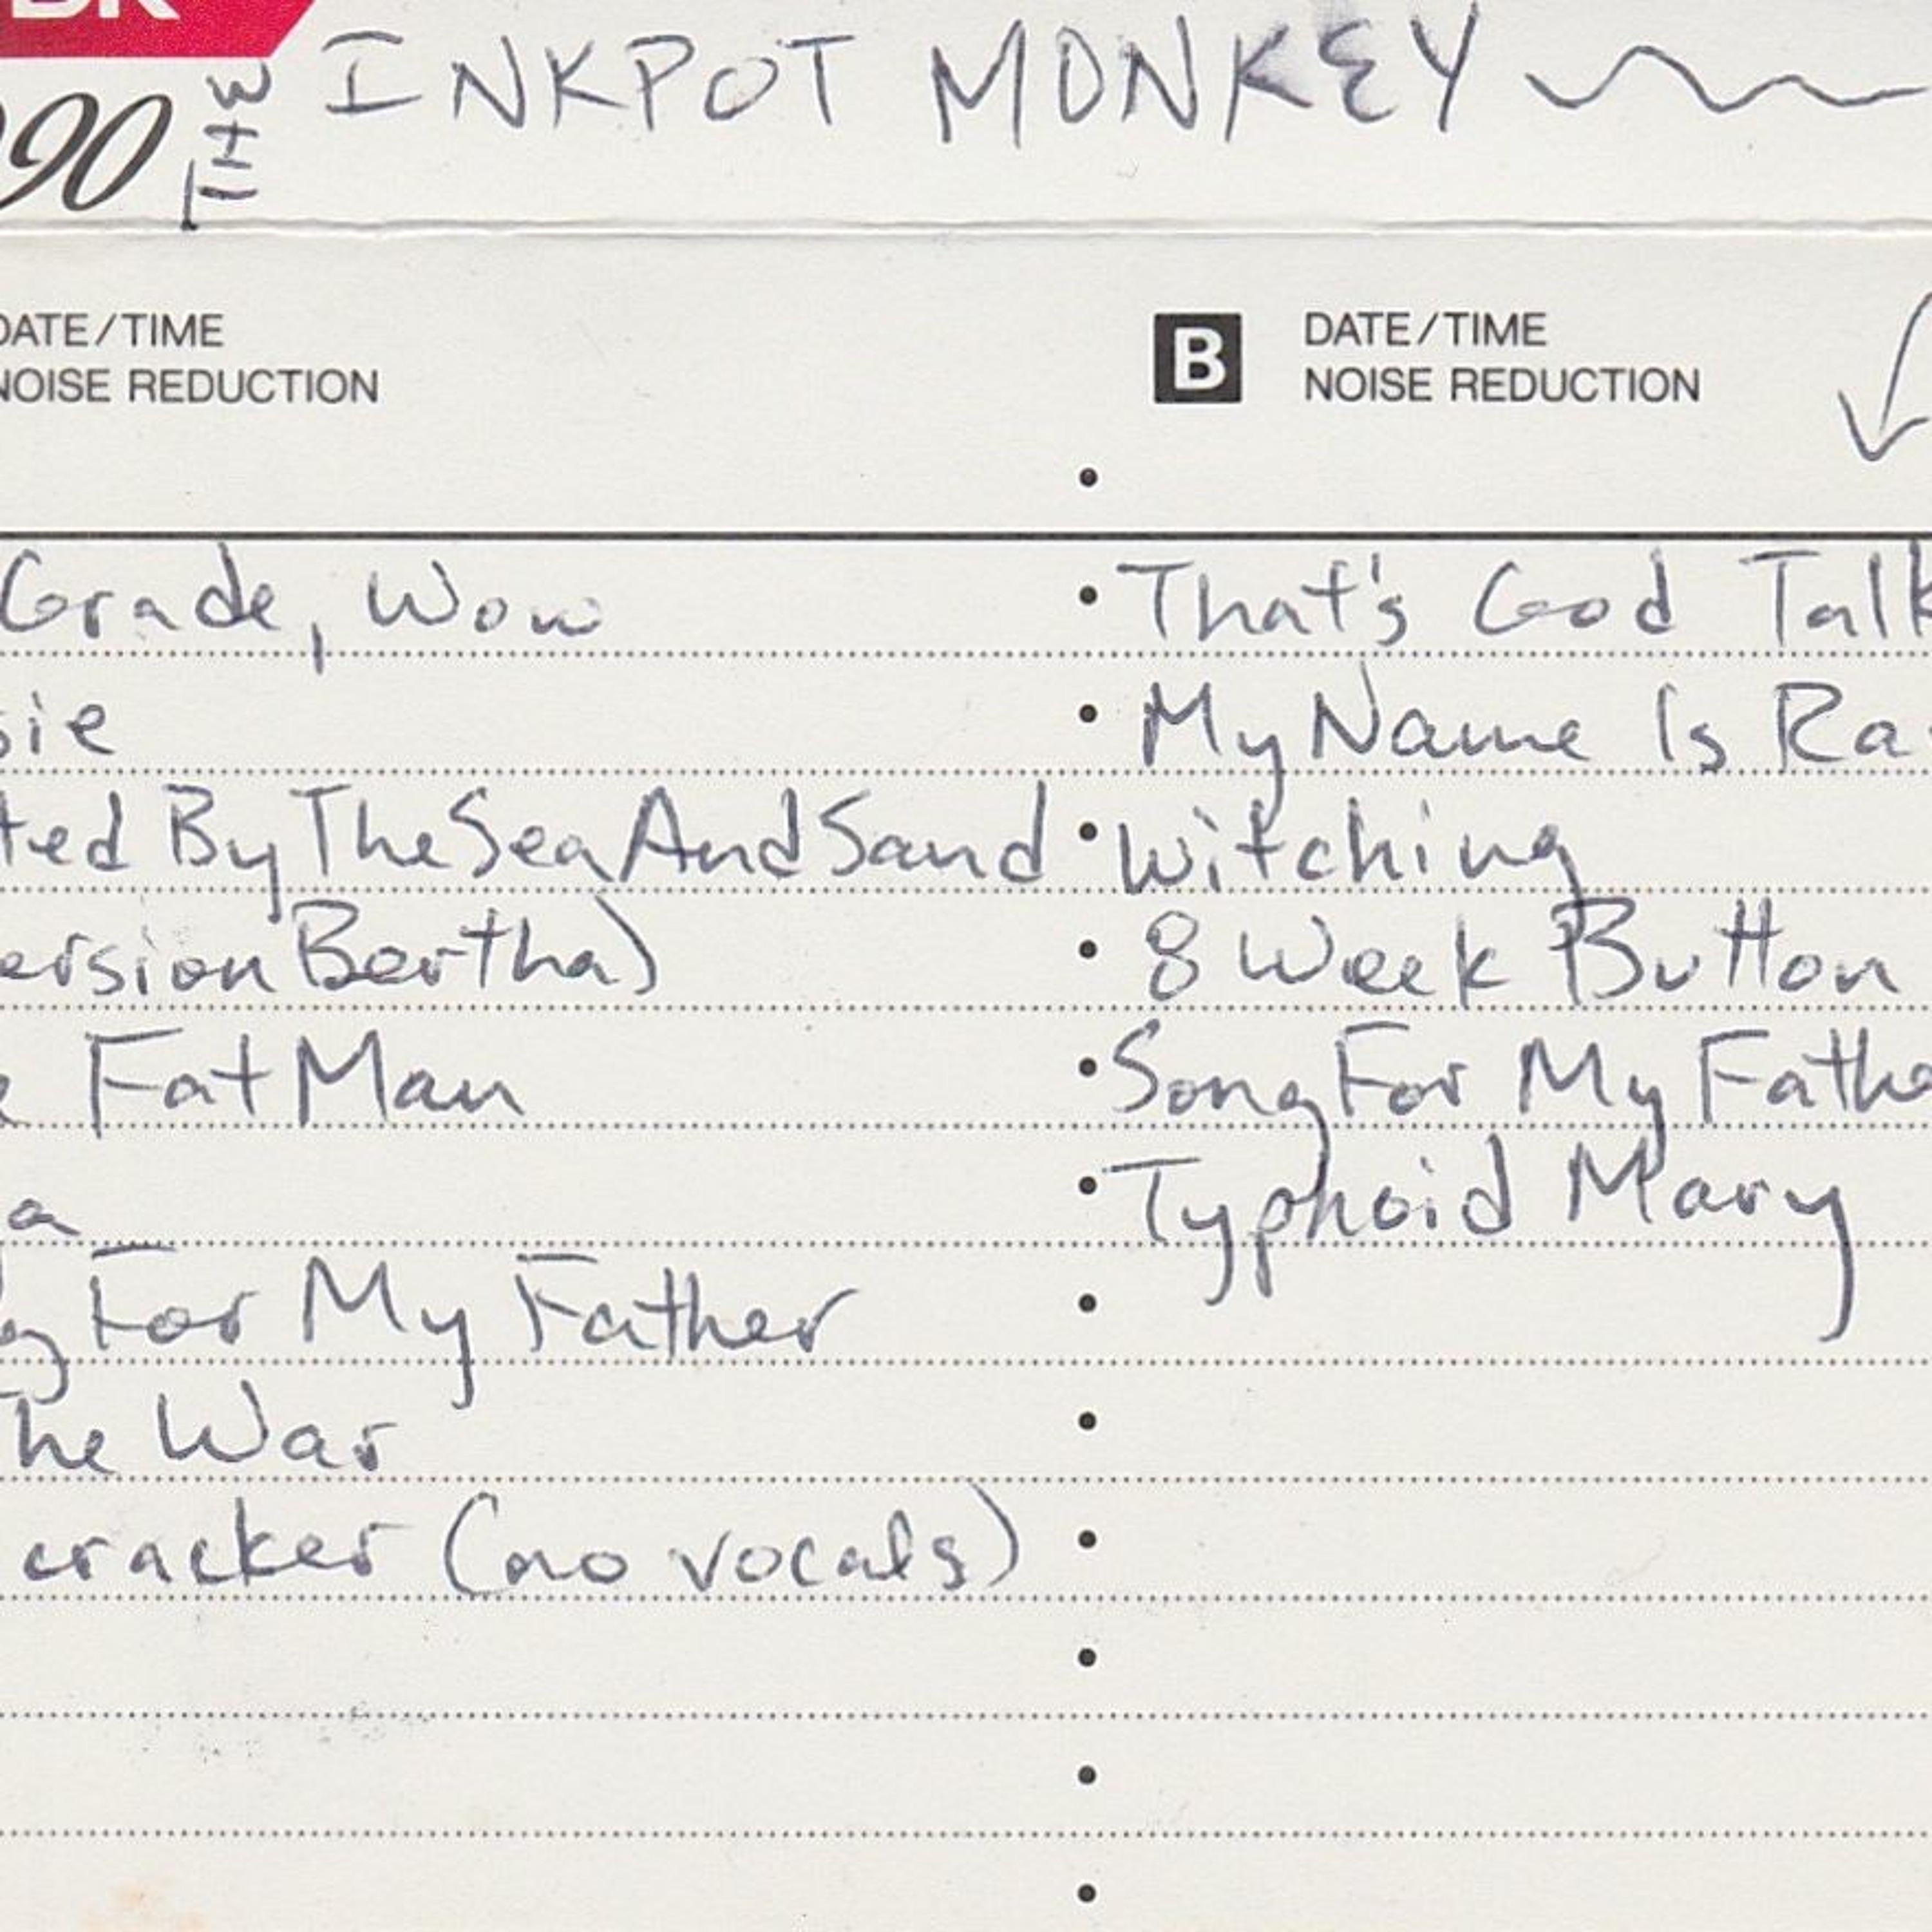 THE INKPOT MONKEY
90
DATE/TIME
NOISE REDUCTION
B DATE/TIME
NOISE REDUCTION
Grade, Wow
sie
ted By The Sea And Sand
ersion Bertha)
Fat Man
a
g For My Father
he War
cracker (no vocals)
That's God Talk
My Name Is Ra
Witching
8 Week Button
Song For My Fathe
Typhoid Mary